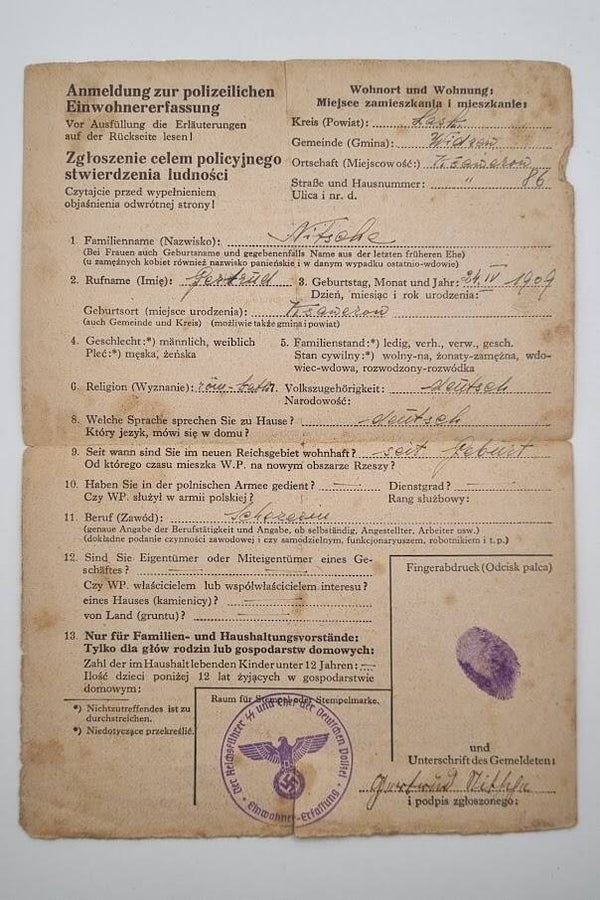 Anmeldung zur polizeilichen
Einwohnererfassung
Vor Ausfüllung die Erläuterungen
auf der Rückseite lesen!
Zgłoszenie celem policyjnego
stwierdzenia ludności
Czytajcie przed wypełnieniem
objaśnienia odwrótnej strony!
Wohnort und Wohnung:
Miejsce zamieszkania i mieszkanie:
Kreis (Powiat): Lask
Gemeinde (Gmina): Widzew
Ortschaft (Miejscowość:) Ksawerow
Straße und Hausnummer: " 86
Ulica i nr. d.
1. Familienname (Nazwisko): Nitsche
(Bei Frauen auch Geburtsname und gegebenenfalls Name aus der letzten früheren Ehe)
(u zamężnych kobiet również nazwisko panieńskie i w danym wypadku ostatnio-wdowie)
2. Rufname (Imię): Gertrud 3. Geburtstag, Monat und Jahr: IV 1909
Dzień, miesiąc i rok urodzenia:
Geburtsort (miejsce urodzenia): Ksawerow
(auch Gemeinde und Kreis) (możliwie także gmina i powiat)
4. Geschlecht:*) männlich, weiblich 5. Familienstand:*) ledig, verh., verw., gesch.
Płeć:*) męska, żeńska Stan cywilny:*) wolny-na, żonaty-zamężna, wdo-
wiec-wdowa, rozwodzony-rozwódka
6. Religion (Wyznanie): röm.-kath. Volkszugehörigkeit: deutsch
Narodowość:
8. Welche Sprache sprechen Sie zu Hause? deutsch
Który język, mówi się w domu?
9. Seit wann sind Sie im neuen Reichsgebiet wohnhaft? seit Geburt
Od którego czasu mieszka W.P. na nowym obszarze Rzeszy?
10. Haben Sie in der polnischen Armee gedient? — Dienstgrad? —
Czy WP. służył w armii polskiej? Rang służbowy:
11. Beruf (Zawód):
(genaue Angabe der Berufstätigkeit und Angabe, ob selbständig, Angestellter, Arbeiter usw.)
(dokładne podanie czynności zawodowej i czy samodzielnym, funkcjonaryuszem, robotnikiem i t. p.)
12. Sind Sie Eigentümer oder Miteigentümer eines Ge-
schäftes? —
Czy WP. właścicielem lub współwłaścicielem interesu?
eines Hauses (kamienicy)? —
von Land (gruntu)? —
13. Nur für Familien- und Haushaltungsvorstände:
Tylko dla głów rodzin lub gospodarstw domowych:
Zahl der im Haushalt lebenden Kinder unter 12 Jahren: —
Ilość dzieci poniżej 12 lat żyjących w gospodarstwie
domowym:
*) Nichtzutreffendes ist zu
durchstreichen.
*) Niedotyczące przekreślić.
Raum für Stempel oder Stempelmarke.
Der Reichsführer SS und Chef der Deutschen Polizei
Einwohner-Erfassung
Fingerabdruck (Odcisk palca)
und
Unterschrift des Gemeldeten:
i podpis zgłoszonego: